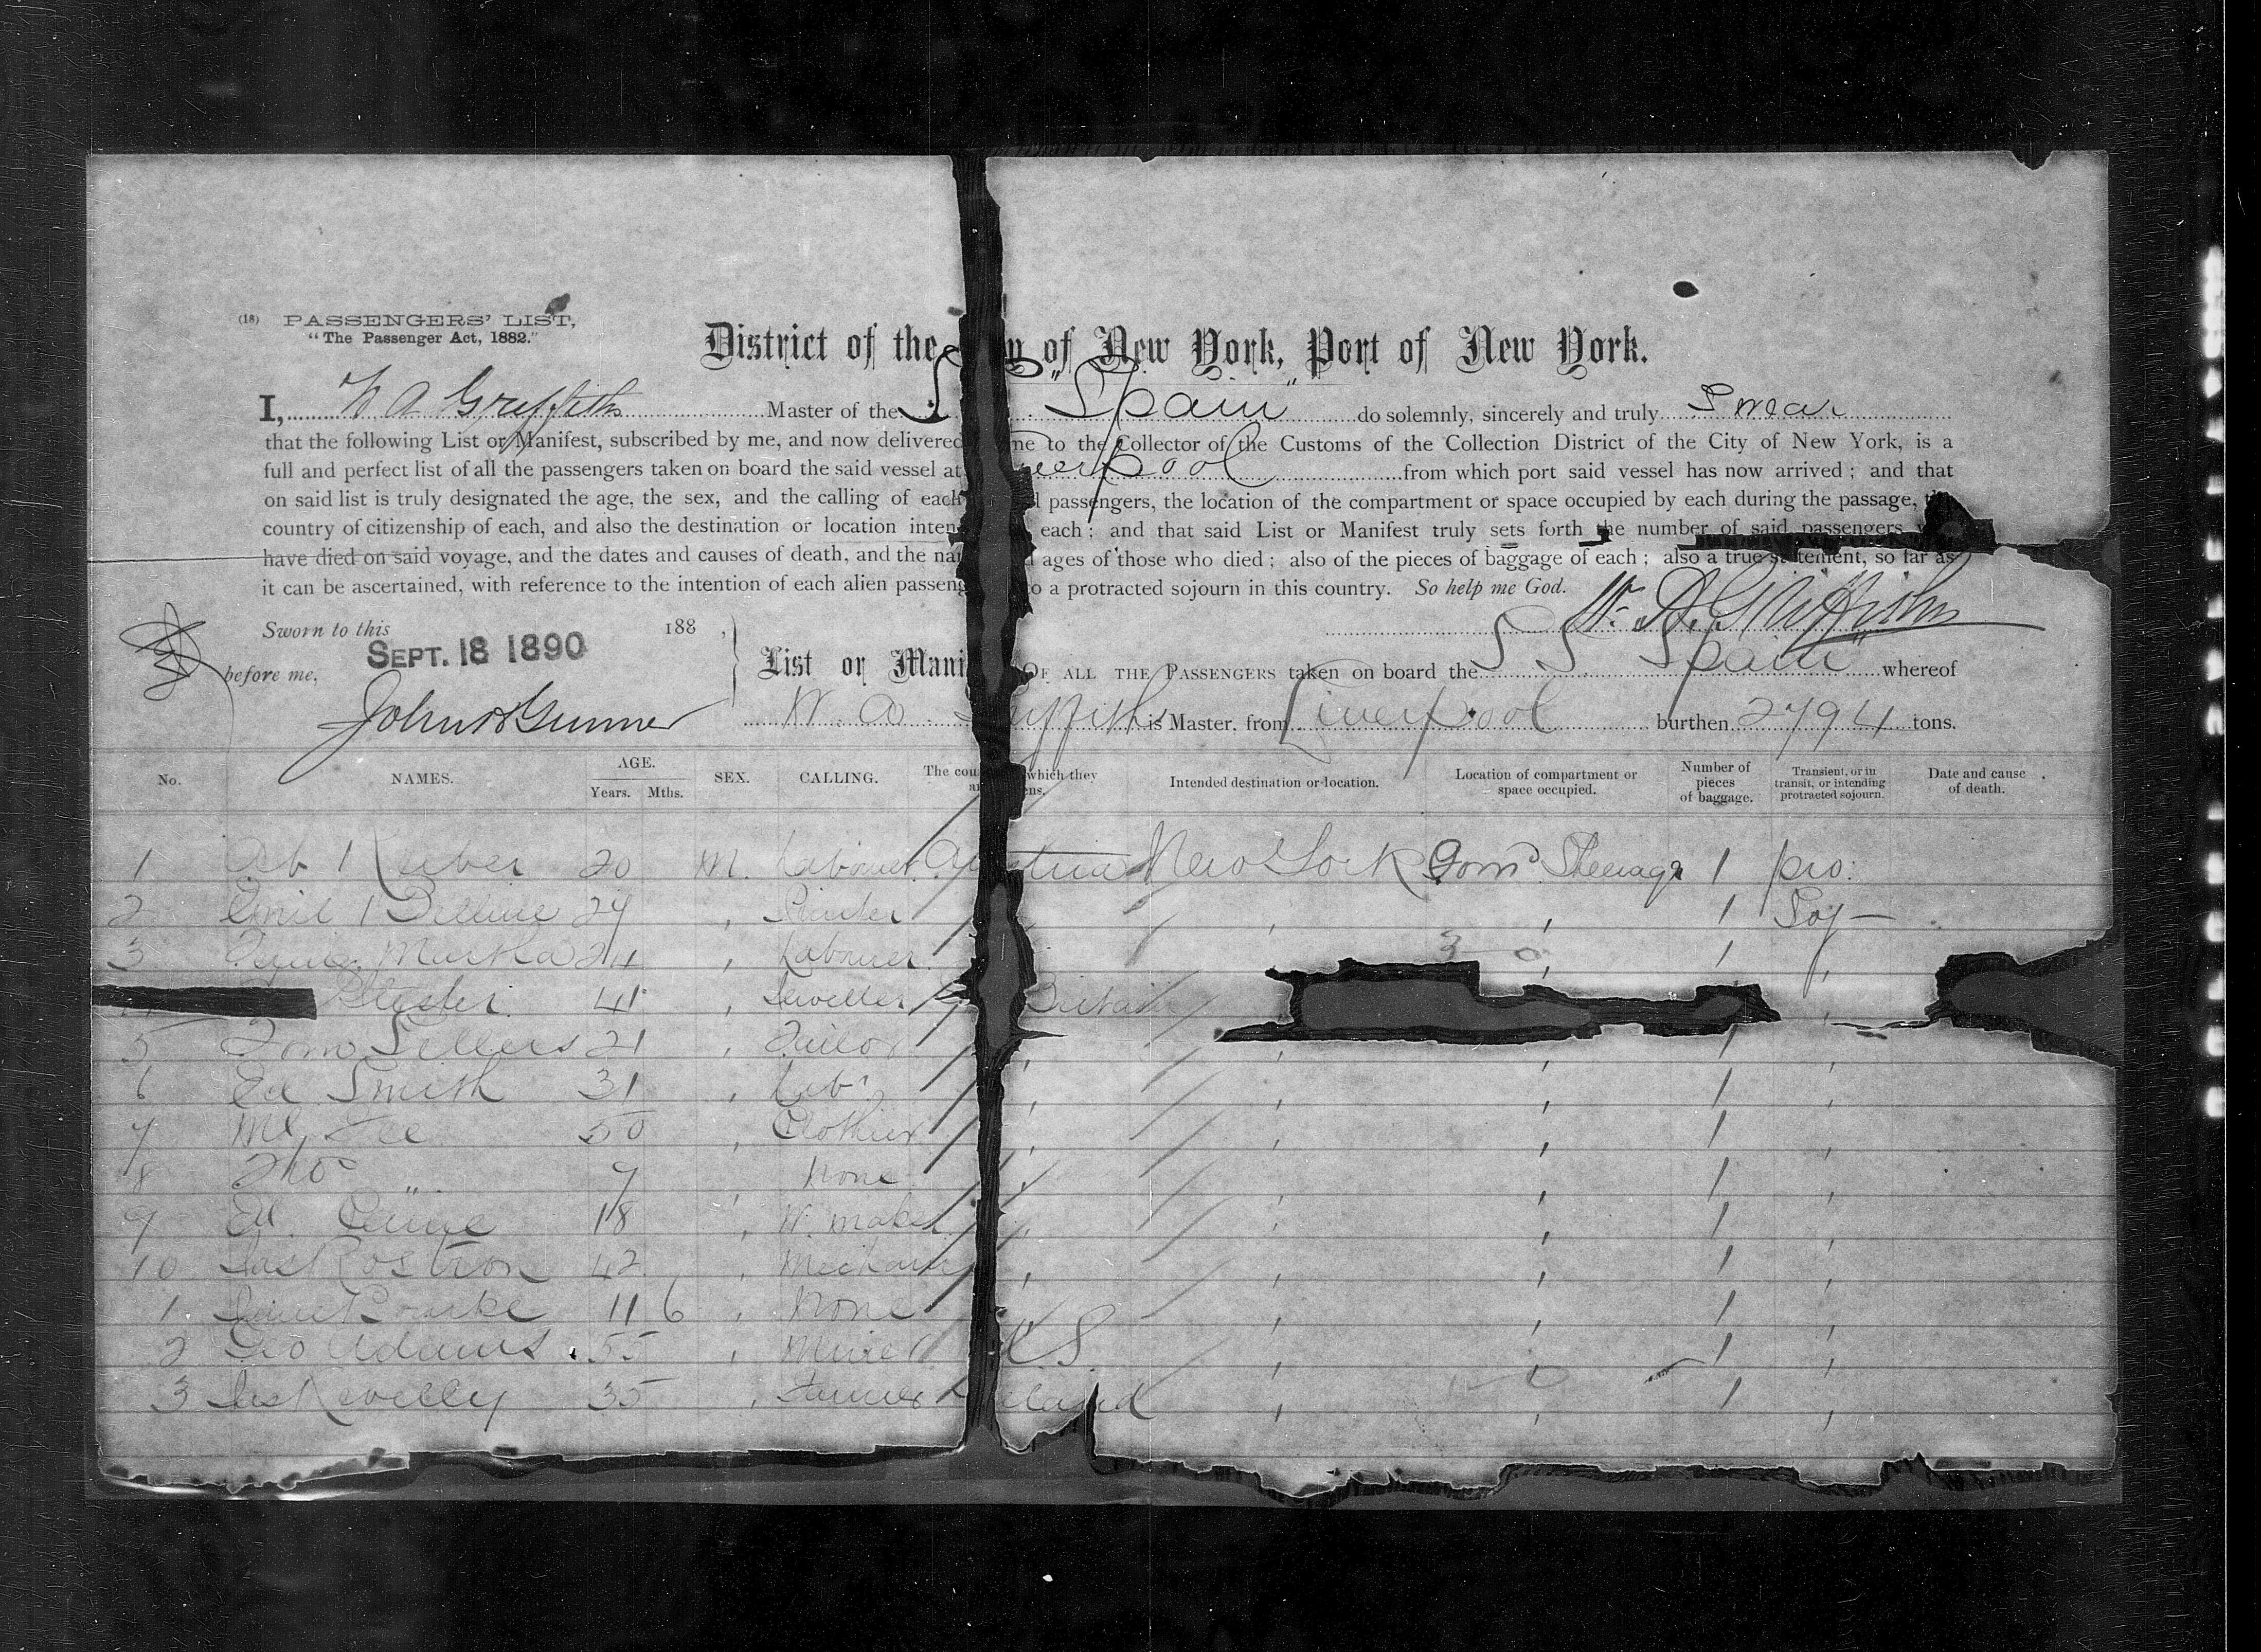 (18) PASSENGERS' LIST,
"The Passenger Act, 1882."
District of the City of New York, Port of New York.
I, W A Griffith Master of the S "Spain" do solemnly, sincerely and truly Swear
that the following List or Manifest, subscribed by me, and now delivered me to the Collector of the Customs of the Collection District of the City of New York, is a
full and perfect list of all the passengers taken on board the said vessel at verpool from which port said vessel has now arrived; and that
on said list is truly designated the age, the sex, and the calling of each passengers, the location of the compartment or space occupied by each during the passage, the
country of citizenship of each, and also the destination or location inten each; and that said List or Manifest truly sets forth the number of said passengers
have died on said voyage, and the dates and causes of death, and the na ages of those who died; also of the pieces of baggage of each; also a true statement, so far as
it can be ascertained, with reference to the intention of each alien passeng to a protracted sojourn in this country. So help me God.
W. A. Griffiths
Sworn to this 188 ,
SEPT. 18 1890
before me,
John Gunner
List or Mani OF ALL THE PASSENGERS taken on board the S S "Spain" whereof
W. A. Griffith is Master, from Liverpool burthen 2794 tons.
No. NAMES. AGE. Years. Mths. SEX. CALLING. The cou which they a ens. Intended destination or location. Location of compartment or space occupied. Number of pieces of baggage. Transient, or in transit, or intending protracted sojourn. Date and cause of death.
1 20 M. Labourer Austria New York Steerage 1 pro:
2 Emil 29 , , , 1 Soj —
3 Martha 24 , Labourer , 1 ,
41 , Jeweller Britain ,
5 Tom Sellers 21 , Tailor , , , 1 ,
6 Ed Smith 31 , Labr , , , 1 ,
7 Ml Fee 50 , Clothier , , , 1 ,
8 Tho " 7 , None , , , 1 ,
9 18 , W. maker , , , 1 ,
10 Jas Rostron 42 , Mechanic , , , 1 ,
1 Bourke 11 6 , None , , 1 ,
2 Geo Adams 55 , Miner U S. , , 1 ,
3 Jas 35 , Farmer eland , , 1 ,